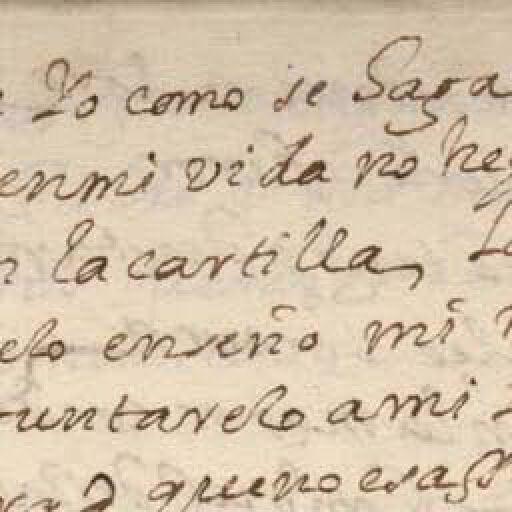 Yo como se Saga
enmi vida no he
la cartilla,
elo enseño mi
untarelo ami
que no esa